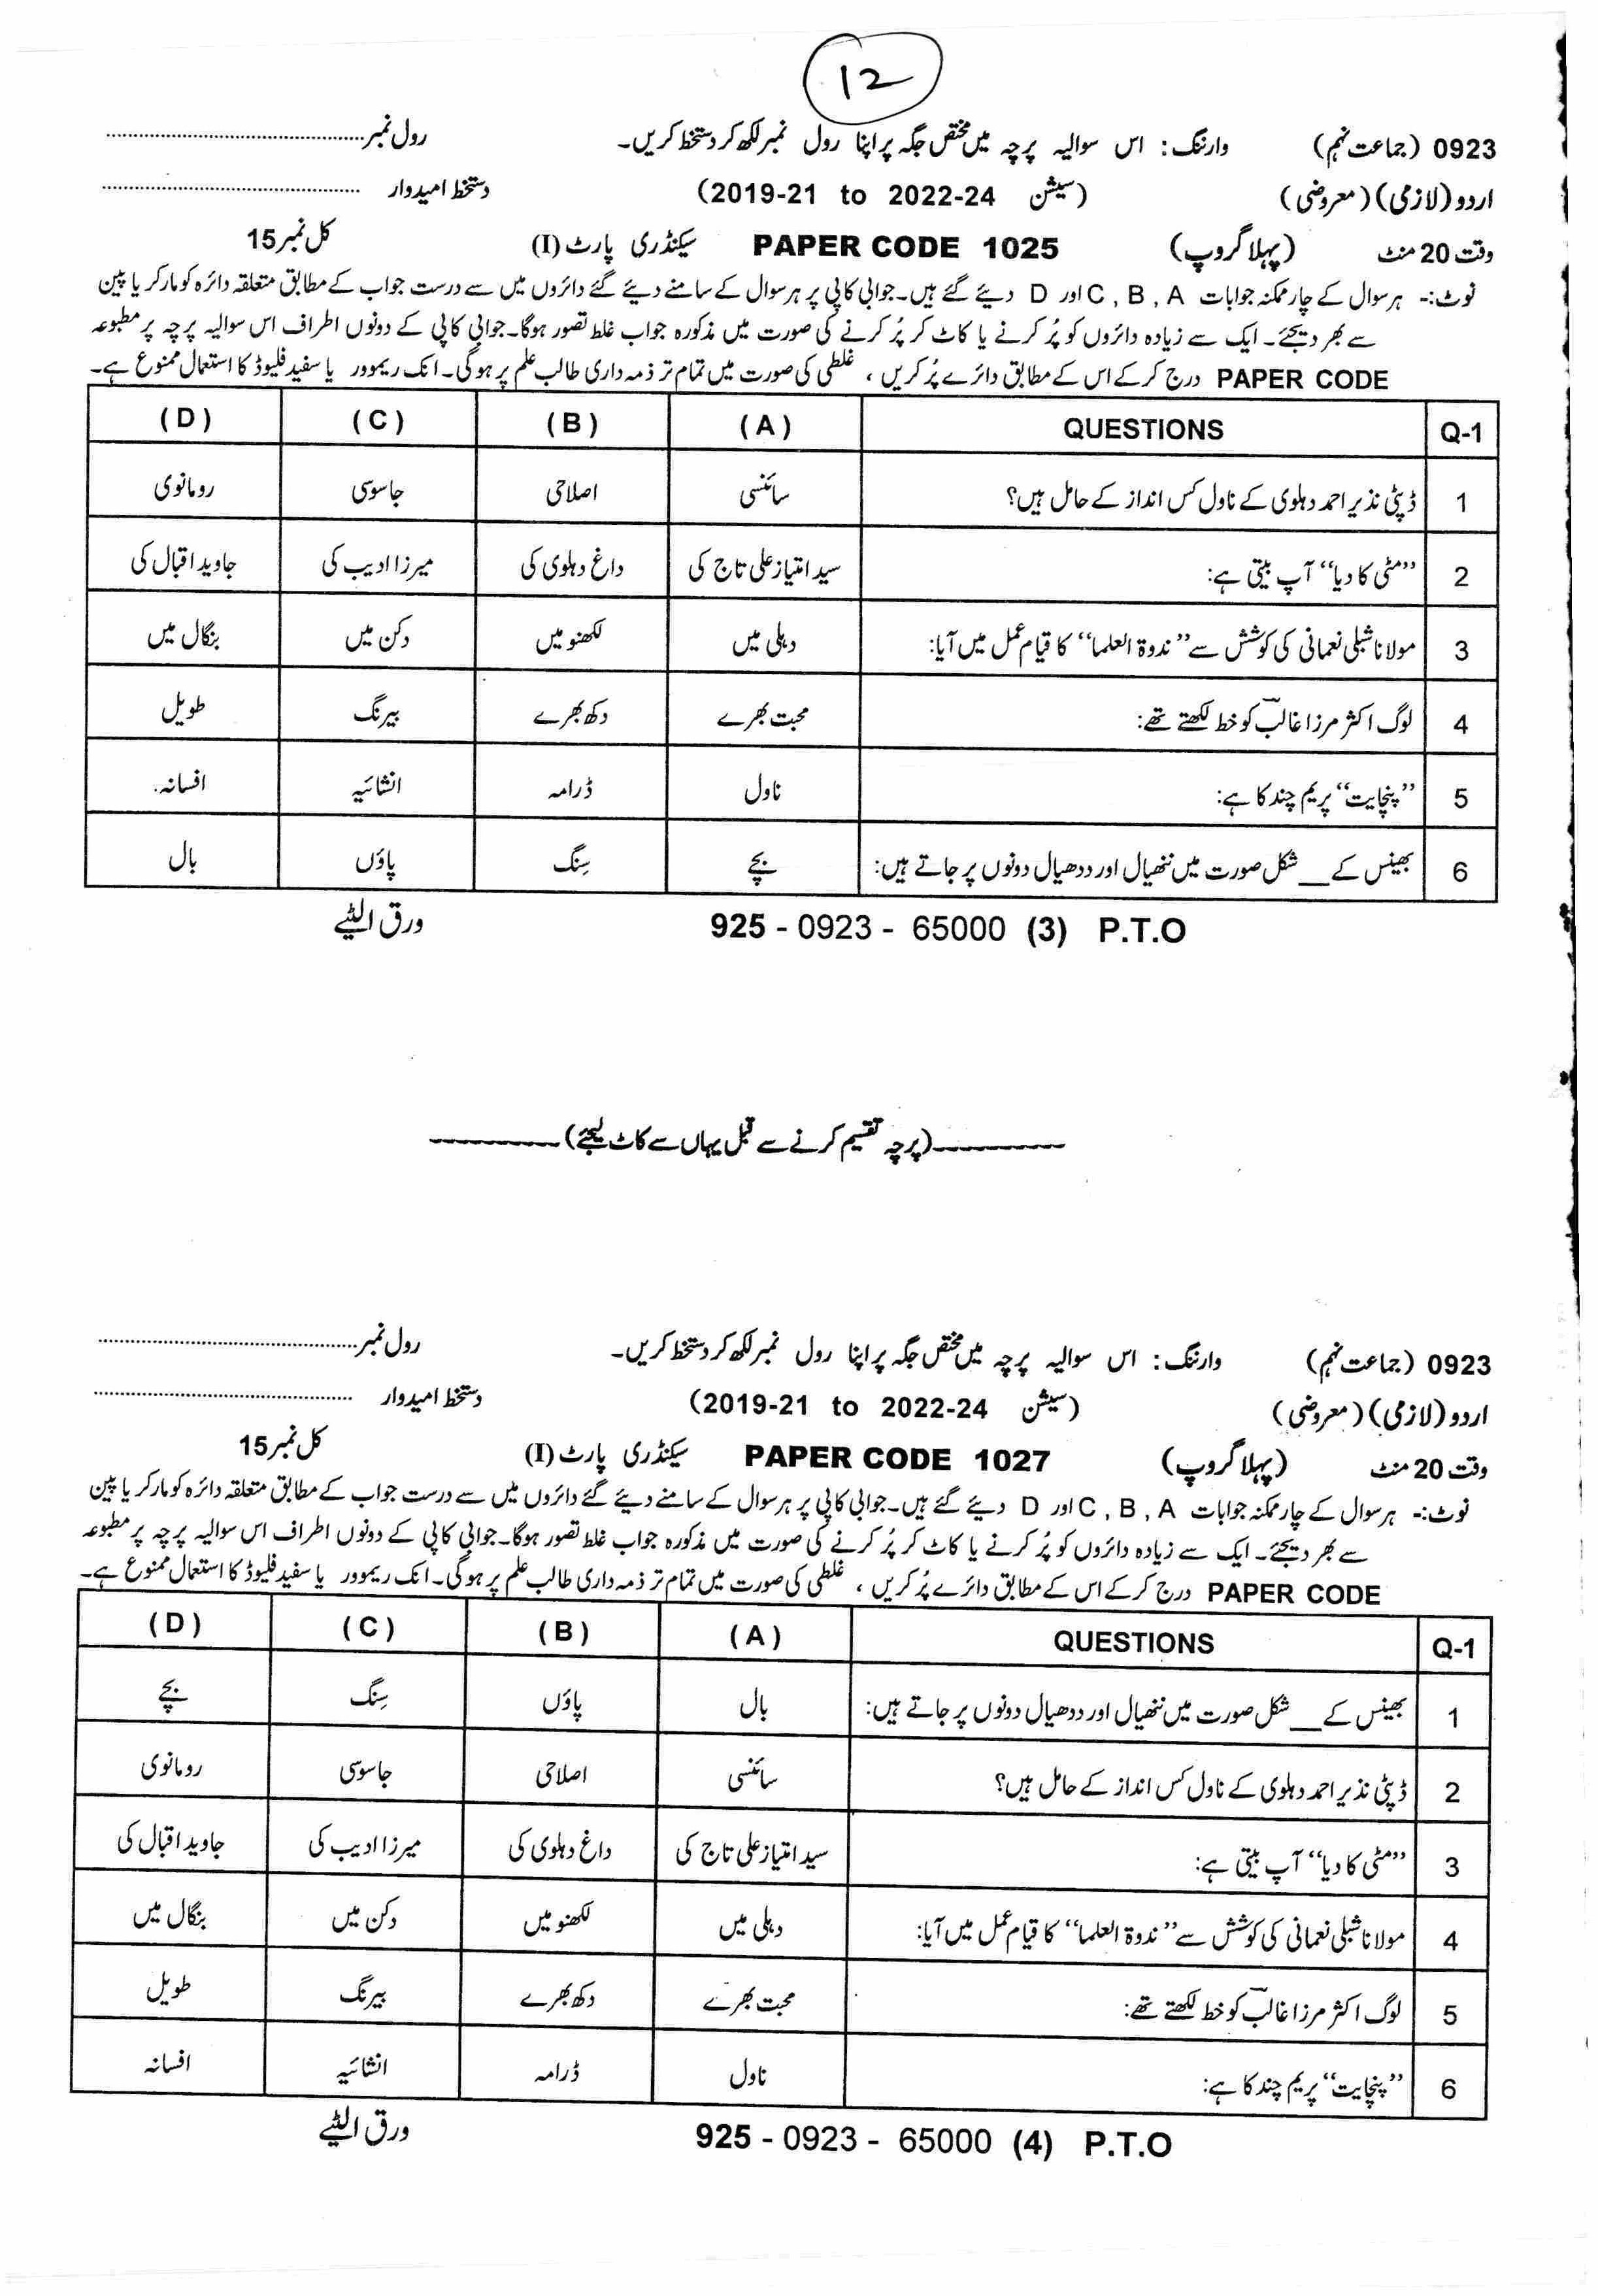 12
0923 (جماعت نہم) وارننگ: اس سوالیہ پرچہ میں مختص جگہ پر اپنا رول نمبر لکھ کر دستخط کریں۔ رول نمبر
اردو (لازمی) (معروضی) (سیشن 2019-21 to 2022-24) دستخط امیدوار
وقت 20 منٹ (پہلا گروپ) PAPER CODE 1025 سیکنڈری پارٹ (I) کل نمبر 15
نوٹ:- ہر سوال کے چار ممکنہ جوابات C , B , A اور D دیئے گئے ہیں۔ جوابی کاپی پر ہر سوال کے سامنے دیئے گئے دائروں میں سے درست جواب کے مطابق متعلقہ دائرہ کو مارکر یا پین
سے بھر دیجئے۔ ایک سے زیادہ دائروں کو پُر کرنے یا کاٹ کر پُر کرنے کی صورت میں مذکورہ جواب غلط تصور ہوگا۔ جوابی کاپی کے دونوں اطراف اس سوالیہ پرچہ پر مطبوعہ
PAPER CODE درج کر کے اس کے مطابق دائرے پُر کریں ، غلطی کی صورت میں تمام تر ذمہ داری طالب علم پر ہوگی۔ انک ریموور یا سفید فلیوڈ کا استعمال ممنوع ہے۔
Q-1 QUESTIONS (A) (B) (C) (D)
1 ڈپٹی نذیر احمد دہلوی کے ناول کس انداز کے حامل ہیں؟ سائنسی اصلاحی جاسوسی رومانوی
2 ’’مٹی کا دیا‘‘ آپ بیتی ہے: سید امتیاز علی تاج کی داغ دہلوی کی میرزا ادیب کی جاوید اقبال کی
3 مولانا شبلی نعمانی کی کوشش سے ’’ندوۃ العلما‘‘ کا قیام عمل میں آیا: دہلی میں لکھنو میں دکن میں بنگال میں
4 لوگ اکثر مرزا غالبؔ کو خط لکھتے تھے: محبت بھرے دکھ بھرے بیرنگ طویل
5 ’’پنچایت‘‘ پریم چند کا ہے: ناول ڈرامہ انشائیہ افسانہ
6 بھینس کے ___ شکل صورت میں ننھیال اور ددھیال دونوں پر جاتے ہیں: بچے سِنگ پاؤں بال
925 - 0923 - 65000 (3) P.T.O ورق الٹیے
(پرچہ تقسیم کرنے سے قبل یہاں سے کاٹ لیجئے)
0923 (جماعت نہم) وارننگ: اس سوالیہ پرچہ میں مختص جگہ پر اپنا رول نمبر لکھ کر دستخط کریں۔ رول نمبر
اردو (لازمی) (معروضی) (سیشن 2019-21 to 2022-24) دستخط امیدوار
وقت 20 منٹ (پہلا گروپ) PAPER CODE 1027 سیکنڈری پارٹ (I) کل نمبر 15
نوٹ:- ہر سوال کے چار ممکنہ جوابات C , B , A اور D دیئے گئے ہیں۔ جوابی کاپی پر ہر سوال کے سامنے دیئے گئے دائروں میں سے درست جواب کے مطابق متعلقہ دائرہ کو مارکر یا پین
سے بھر دیجئے۔ ایک سے زیادہ دائروں کو پُر کرنے یا کاٹ کر پُر کرنے کی صورت میں مذکورہ جواب غلط تصور ہوگا۔ جوابی کاپی کے دونوں اطراف اس سوالیہ پرچہ پر مطبوعہ
PAPER CODE درج کر کے اس کے مطابق دائرے پُر کریں ، غلطی کی صورت میں تمام تر ذمہ داری طالب علم پر ہوگی۔ انک ریموور یا سفید فلیوڈ کا استعمال ممنوع ہے۔
Q-1 QUESTIONS (A) (B) (C) (D)
1 بھینس کے ___ شکل صورت میں ننھیال اور ددھیال دونوں پر جاتے ہیں: بال پاؤں سِنگ بچے
2 ڈپٹی نذیر احمد دہلوی کے ناول کس انداز کے حامل ہیں؟ سائنسی اصلاحی جاسوسی رومانوی
3 ’’مٹی کا دیا‘‘ آپ بیتی ہے: سید امتیاز علی تاج کی داغ دہلوی کی میرزا ادیب کی جاوید اقبال کی
4 مولانا شبلی نعمانی کی کوشش سے ’’ندوۃ العلما‘‘ کا قیام عمل میں آیا: دہلی میں لکھنو میں دکن میں بنگال میں
5 لوگ اکثر مرزا غالبؔ کو خط لکھتے تھے: محبت بھرے دکھ بھرے بیرنگ طویل
6 ’’پنچایت‘‘ پریم چند کا ہے: ناول ڈرامہ انشائیہ افسانہ
925 - 0923 - 65000 (4) P.T.O ورق الٹیے